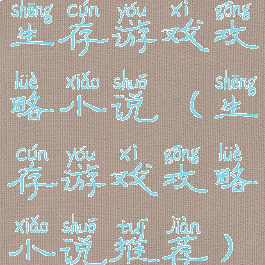 shēng cún yóu xì gōng
生存游戏攻
lüè xiǎo shuō shēng
略小说（生
cún yóu xì gōng lüè
存游戏攻略
xiǎo shuō tuī jiàn
小说推荐）